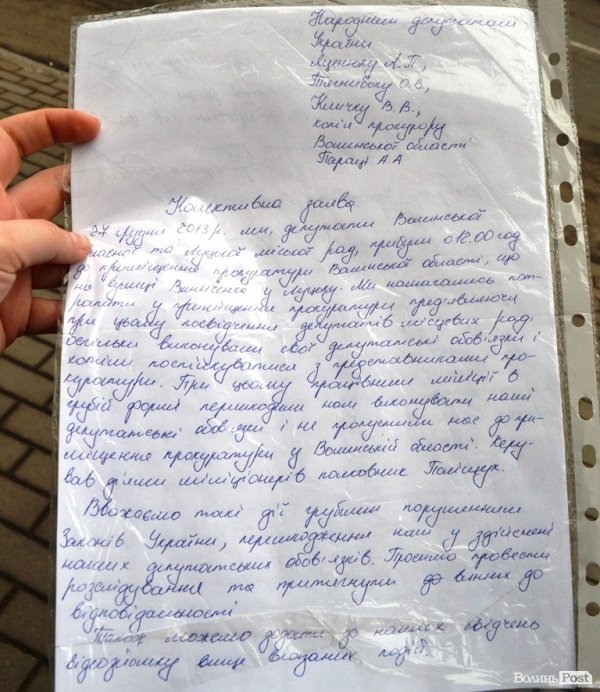 Народним депутатам
України
Яценюку А.П.,
Тягнибоку О.В,
Кличку В.В.,
копія прокурору
Волинської області
Параці А.А
Колективна заява
27 грудня 2013 р. ми, депутати Волинської
обласної та Луцької міської рад, прибули о 12.00 год
до приміщення прокуратури Волинської області, що
на вулиці Винниченка у Луцьку. Ми намагались пот-
рапити у приміщення прокуратури предявляючи
при цьому посвідчення депутатів місцевих рад.
оскільки виконували свої депутатські обов'язки і
хотіли поспілкуватися з представниками про-
куратури. При цьому працівники міліції в
грубій формі перешкодили нам виконувати наші
депутатські обов'язки і не пропустили нас до при-
міщення прокуратури у Волинській області. Керу-
вав діями міліціонерів полковник Поліщук.
Вважаємо такі дії грубими порушеннями
Законів України, перешкодження нам у здійснені
наших депутатських обов'язків. Просимо провести
розслідування та притягнути до винних до
відповідальності
Також можемо додати до наших свідчень
відеозйомку вище вказаних подій.
Волинь Post